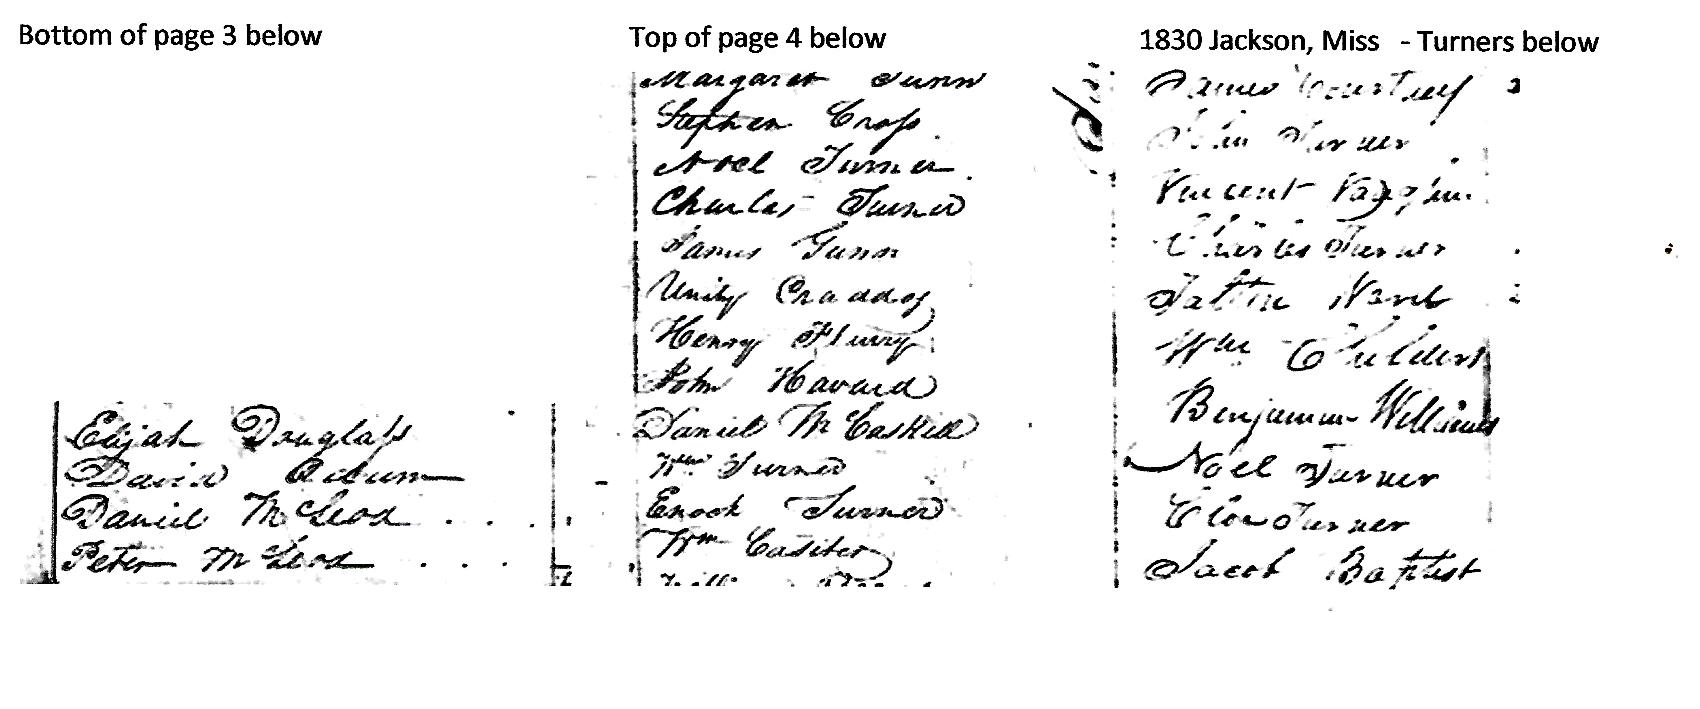 Bottom of page 3 below
Elijah Douglass
David Odum
Daniel McLeod
Peter McLeod
Top of page 4 below
Margaret Gunn
Stephen Cross
Noel Turner
Charles Turner
James Gunn
Unity Craddog
Henry Flurry
John Havard
Daniel McCaskill
Wm Turner
Enoch Turner
Wm Casiter
1830 Jackson, Miss - Turners below
James Courtney 2
John Turner
Vincent
Charles Turner
Ward
Wm Childers
Benjamin Williams
Noel Turner
Turner
Jacob Baptist